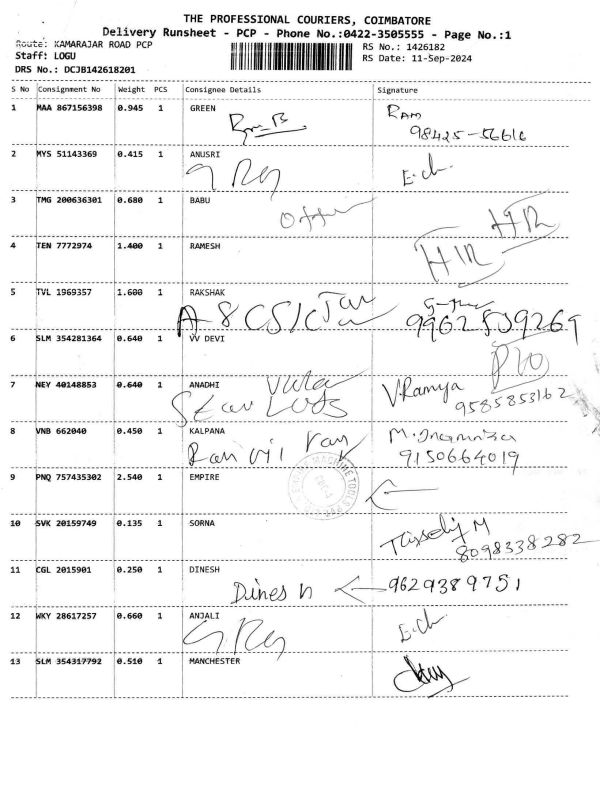 THE PROFESSIONAL COURIERS, COIMBATORE
Delivery Runsheet - PCP - Phone No.:0422-3505555 - Page No.:1
Route: KAMARAJAR ROAD PCP
Staff: LOGU
DRS No.: DCJB142618201
RS No.: 1426182
RS Date: 11-Sep-2024
S No Consignment No Weight PCS Consignee Details Signature
1 MAA 867156398 0.945 1 GREEN
RAM
98425-56616
2 MYS 51143369 0.415 1 ANUSRI
3 TMG 200636301 0.680 1 BABU
4 TEN 7772974 1.400 1 RAMESH
5 TVL 1969357 1.600 1 RAKSHAK
6 SLM 354281364 0.640 1 VV DEVI
7 NEY 40148853 0.640 1 ANADHI
V.Ramya
9585853162
8 VNB 662040 0.450 1 KALPANA
9150664019
9 PNQ 757435302 2.540 1 EMPIRE
10 SVK 20159749 0.135 1 SORNA
8098338282
11 CGL 2015901 0.250 1 DINESH
Dinesh 9629389751
12 WKY 28617257 0.660 1 ANJALI
13 SLM 354317792 0.510 1 MANCHESTER